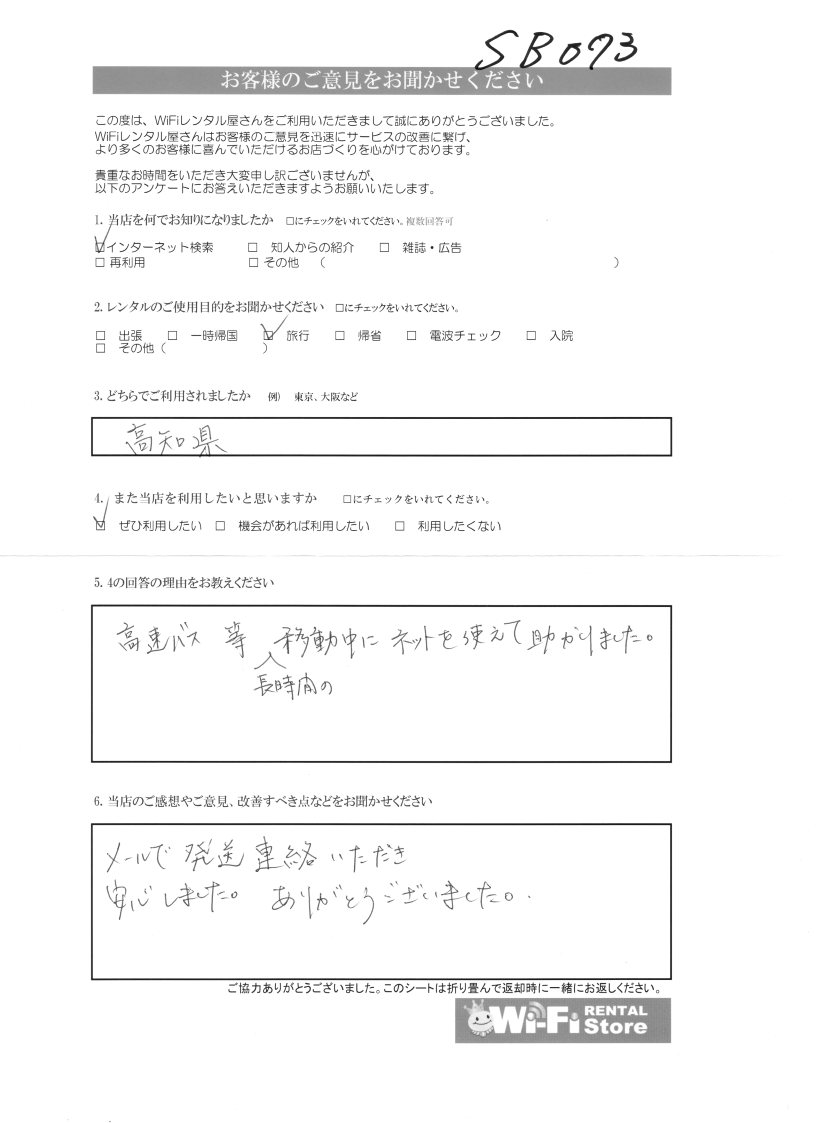 SB073
お客様のご意見をお聞かせください
この度は、WiFiレンタル屋さんをご利用いただきまして誠にありがとうございました。
WiFiレンタル屋さんはお客様のご意見を迅速にサービスの改善に繋げ、
より多くのお客様に喜んでいただけるお店づくりを心がけております。
貴重なお時間をいただき大変申し訳ございませんが、
以下のアンケートにお答えいただきますようお願いいたします。
1. 当店を何でお知りになりましたか □にチェックをいれてください。複数回答可
☑インターネット検索 □ 知人からの紹介 □ 雑誌・広告
□ 再利用 □ その他 ( )
2. レンタルのご使用目的をお聞かせください □にチェックをいれてください。
□ 出張 □ 一時帰国 ☑ 旅行 □ 帰省 □ 電波チェック □ 入院
□ その他 ( )
3. どちらでご利用されましたか 例) 東京、大阪など
高知県
4. また当店を利用したいと思いますか □にチェックをいれてください。
☑ ぜひ利用したい □ 機会があれば利用したい □ 利用したくない
5. 4の回答の理由をお教えください
高速バス 等 移動中に ネットを使えて助かりました。
長時間の
6. 当店のご感想やご意見、改善すべき点などをお聞かせください
メールで発送連絡いただき
安心しました。 ありがとうございました。
ご協力ありがとうございました。このシートは折り畳んで返却時に一緒にお返しください。
Wi-Fi RENTAL
Store